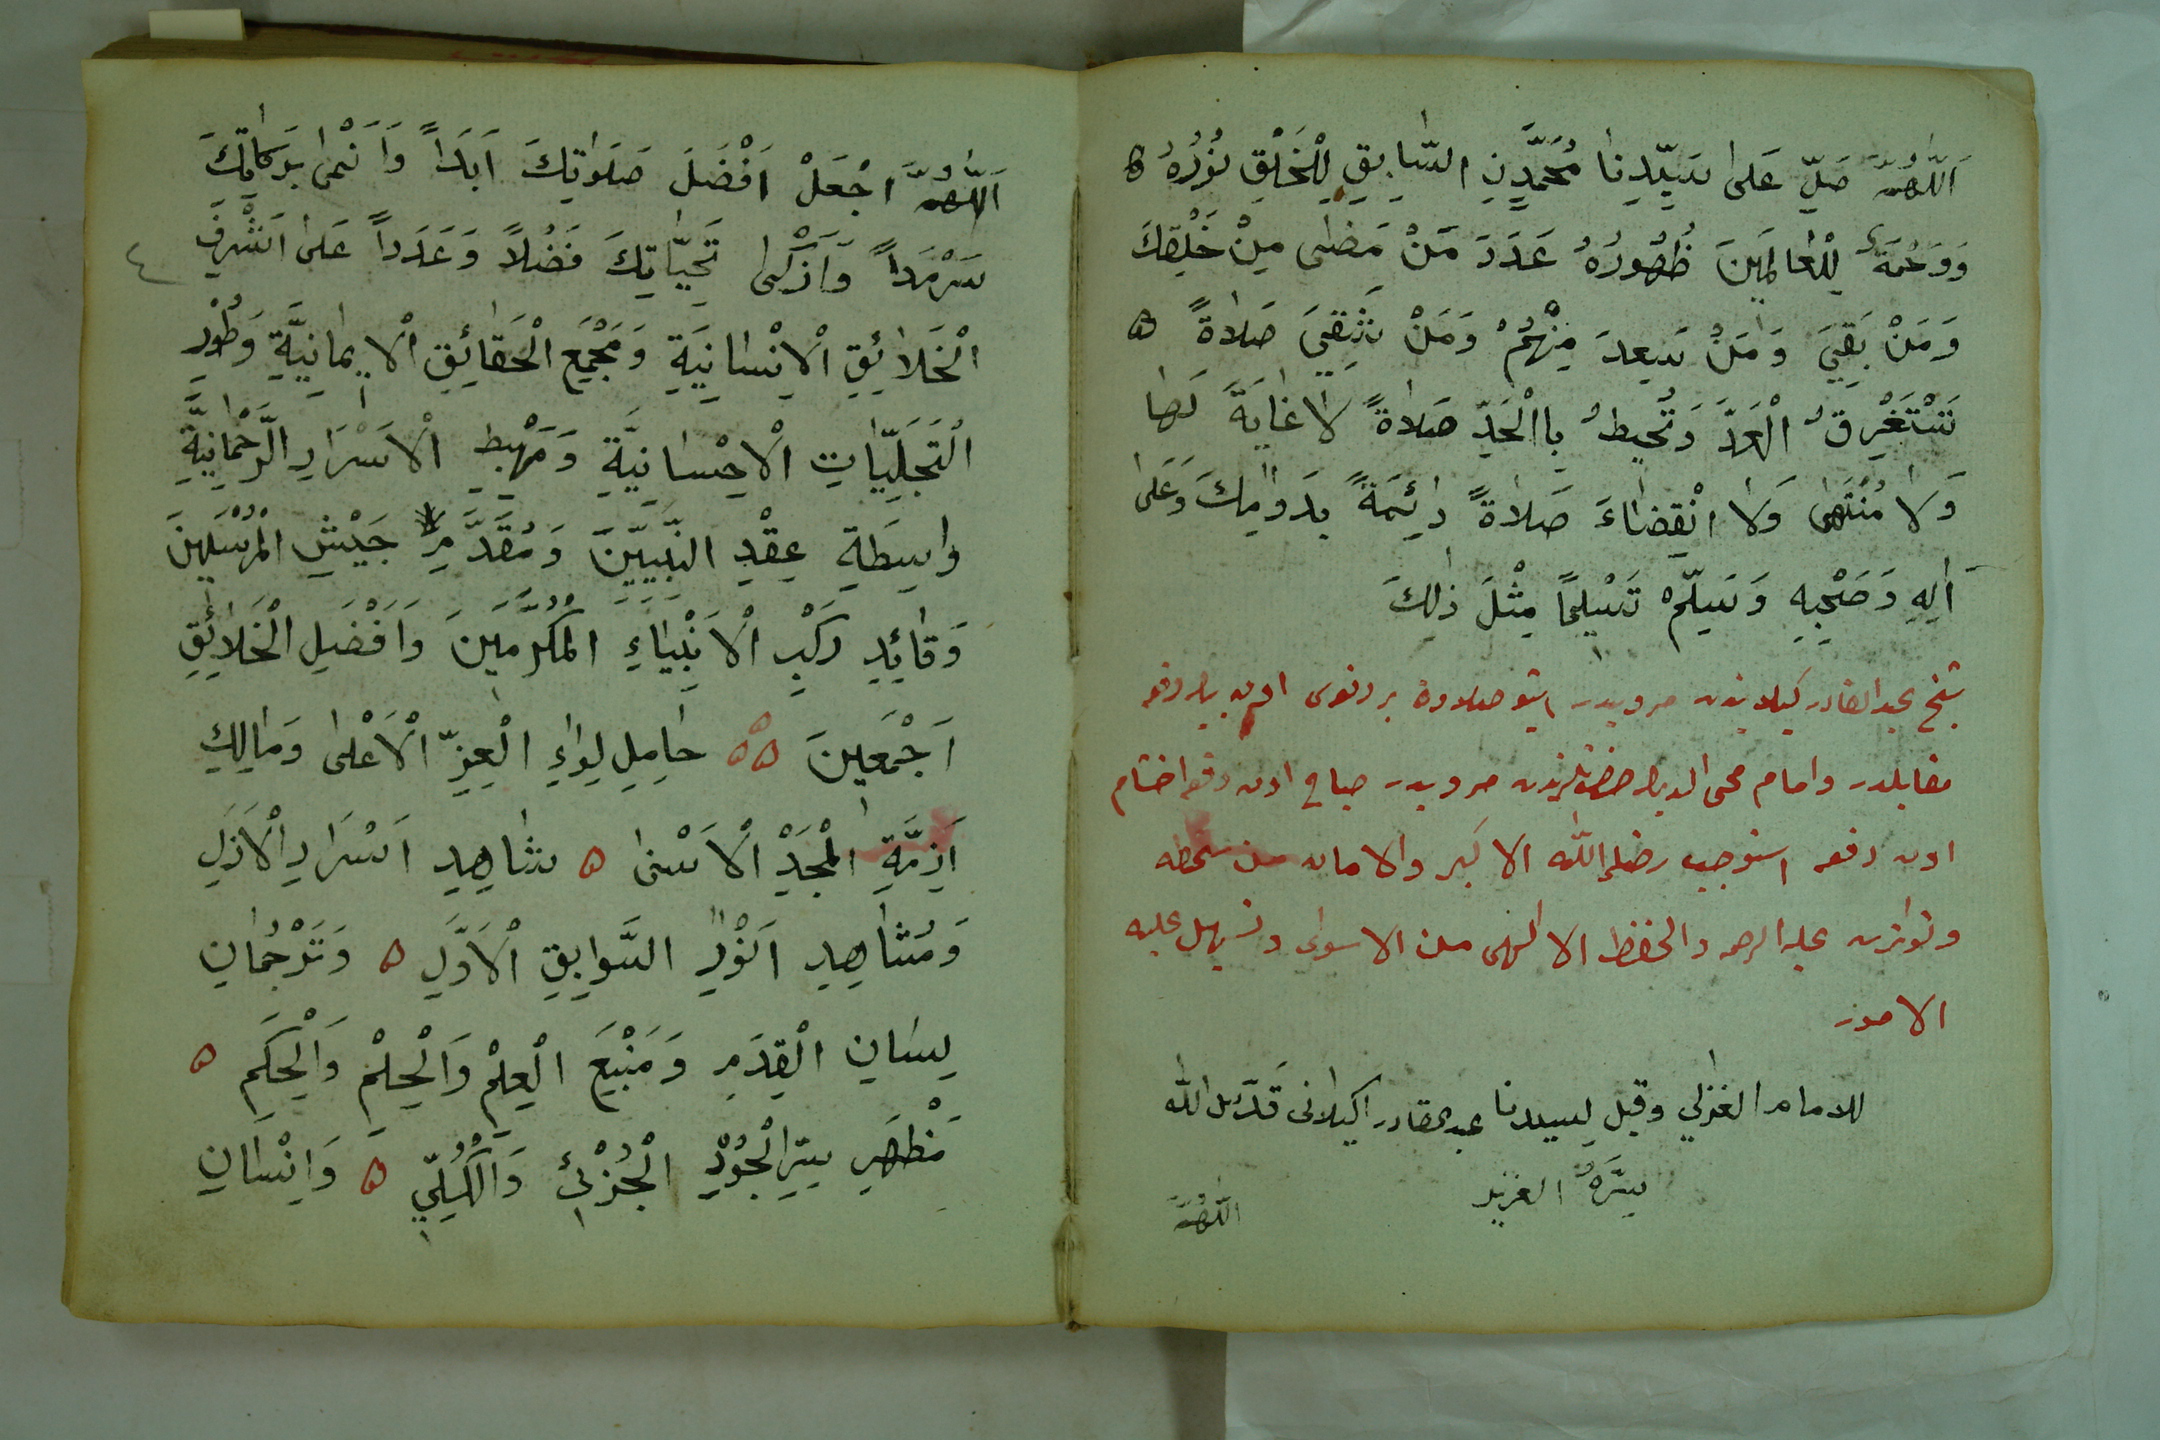 اَللّٰهُمَّ صَلِّ عَلٰى سَيِّدِنَا مُحَمَّدٍ نِ السَّابِقِ لِلْخَلْقِ نُورُهُ
وَرَحْمَةٌ لِلْعَالَمِينَ ظُهُورُهُ عَدَدَ مَنْ مَضٰى مِنْ خَلْقِكَ
وَمَنْ بَقِيَ وَمَنْ سَعِدَ مِنْهُمْ وَمَنْ شَقِيَ صَلَاةً
تَسْتَغْرِقُ الْعَدَّ وَتُحِيطُ بِاالْحَدِّ صَلَاةً لَا غَايَةَ لَهَا
وَلَا مُنْتَهٰى وَلَا انْقِضَاءَ صَلَاةً دَائِمَةً بِدَوَامِكَ وَعَلٰى
اٰلِهِ وَصَحْبِهِ وَسَلِّمْ تَسْلِيمًا مِثْلَ ذٰلِكَ
شيخ عبد القادر كيلانيدن مرويدر اشبو صلاوة بر دفعه سى اون بيك دفعه
مقابلدر وامام محى الدين حضرتلرندن مرويدر صباح اون دفعه اختام
اون دفعه استوجب رضاء الله الاكبر والامان من سخطه
وتواترت عليه الرحمه والحفظ الالهى من الاسواء وتسهيل عليه
الامور
للامام الغزلي وقيل لسيدنا عبد القادر الكيلانى قَدَّسَ الله
سِرَّهُ العزيز
اللّٰهُمَّ
٤
اَللّٰهُمَّ اجْعَلْ اَفْضَلَ صَلَوٰاتِكَ اَبَدًا وَاَنْمٰى بَرَكَاتِكَ
سَرْمَدًا وَاَزْكٰى تَحِيَّاتِكَ فَضْلًا وَعَدَدًا عَلٰى اَشْرَفِ
الْخَلَائِقِ الْاِنْسَانِيَّةِ وَمَجْمَعِ الْحَقَائِقِ الْاِيمَانِيَّةِ وَطُورِ
التَّجَلِّيَاتِ الْاِحْسَانِيَّةِ وَمَهْبِطِ الْاَسْرَارِ الرَّحْمَانِيَّةِ
وَاسِطَةِ عِقْدِ النَّبِيِّينَ وَمُقَدَّمِ جَيْشِ الْمُرْسَلِينَ
وَقَائِدِ رَكْبِ الْاَنْبِيَاءِ الْمُكَرَّمِينَ وَاَفْضَلِ الْخَلَائِقِ
اَجْمَعِينَ حَامِلِ لِوَاءِ الْعِزِّ الْاَعْلٰى وَمَالِكِ
اَزِمَّةِ الْمَجْدِ الْاَسْنٰى شَاهِدِ اَسْرَارِ الْاَزَلِ
وَمُشَاهِدِ اَنْوَارِ السَّوَابِقِ الْاَوَّلِ وَتَرْجُمَانِ
لِسَانِ الْقِدَمِ وَمَنْبَعِ الْعِلْمِ وَالْحِلْمِ وَالْحِكَمِ
مَظْهَرِ سِرِّ الْجُودِ الْجُزْئِيِّ وَالْكُلِّيِّ وَاِنْسَانِ